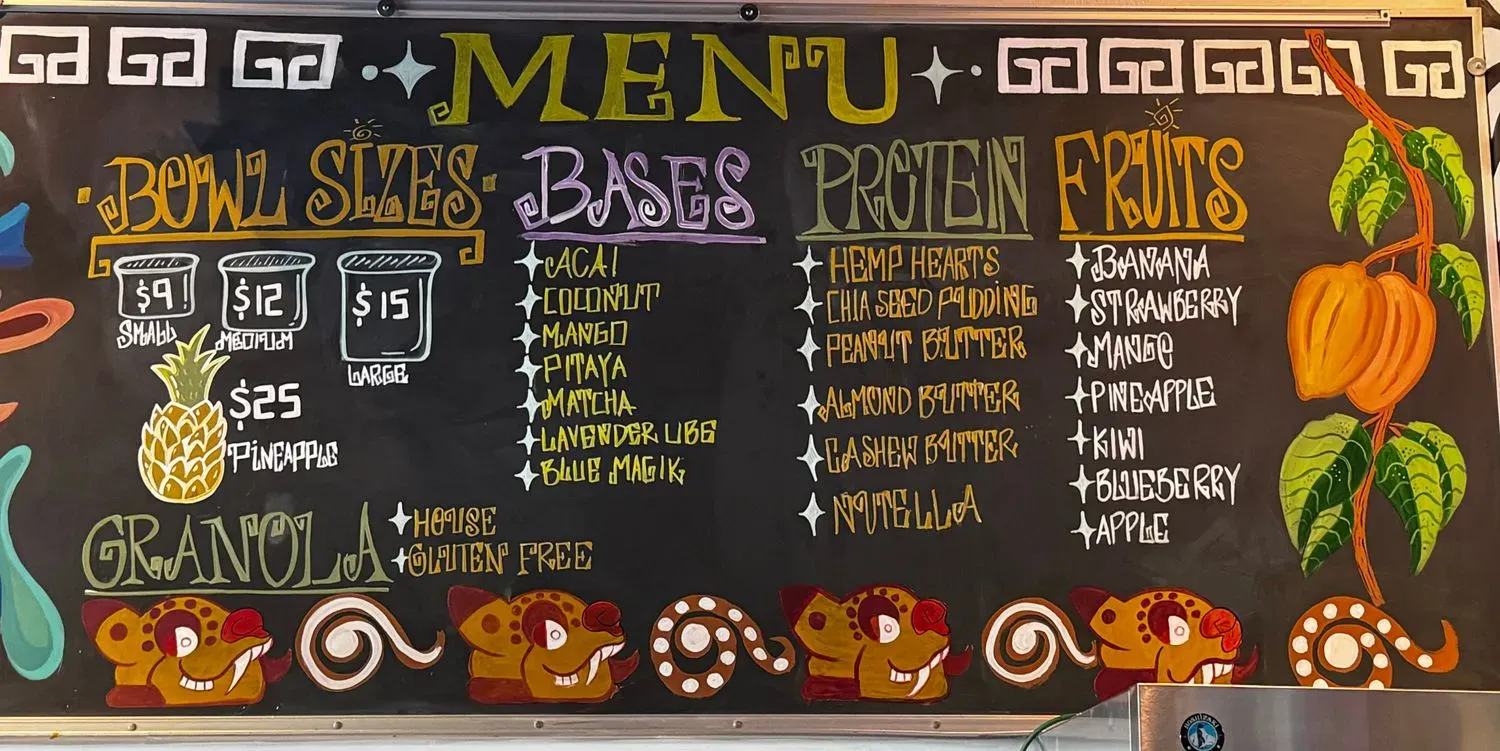 MENU
BOWL SIZES
$9
SMALL
$12
MEDIUM
$15
LARGE
$25
PINEAPPLE
BASES
ACAI
COCONUT
MANGO
PITAYA
MATCHA
LAVENDER UBE
BLUE MAGIK
PROTEIN
HEMP HEARTS
CHIA SEED PUDDING
PEANUT BUTTER
ALMOND BUTTER
CASHEW BUTTER
NUTELLA
FRUITS
BANANA
STRAWBERRY
MANGO
PINEAPPLE
KIWI
BLUEBERRY
APPLE
GRANOLA
HOUSE
GLUTEN FREE
HOSHIZAKI